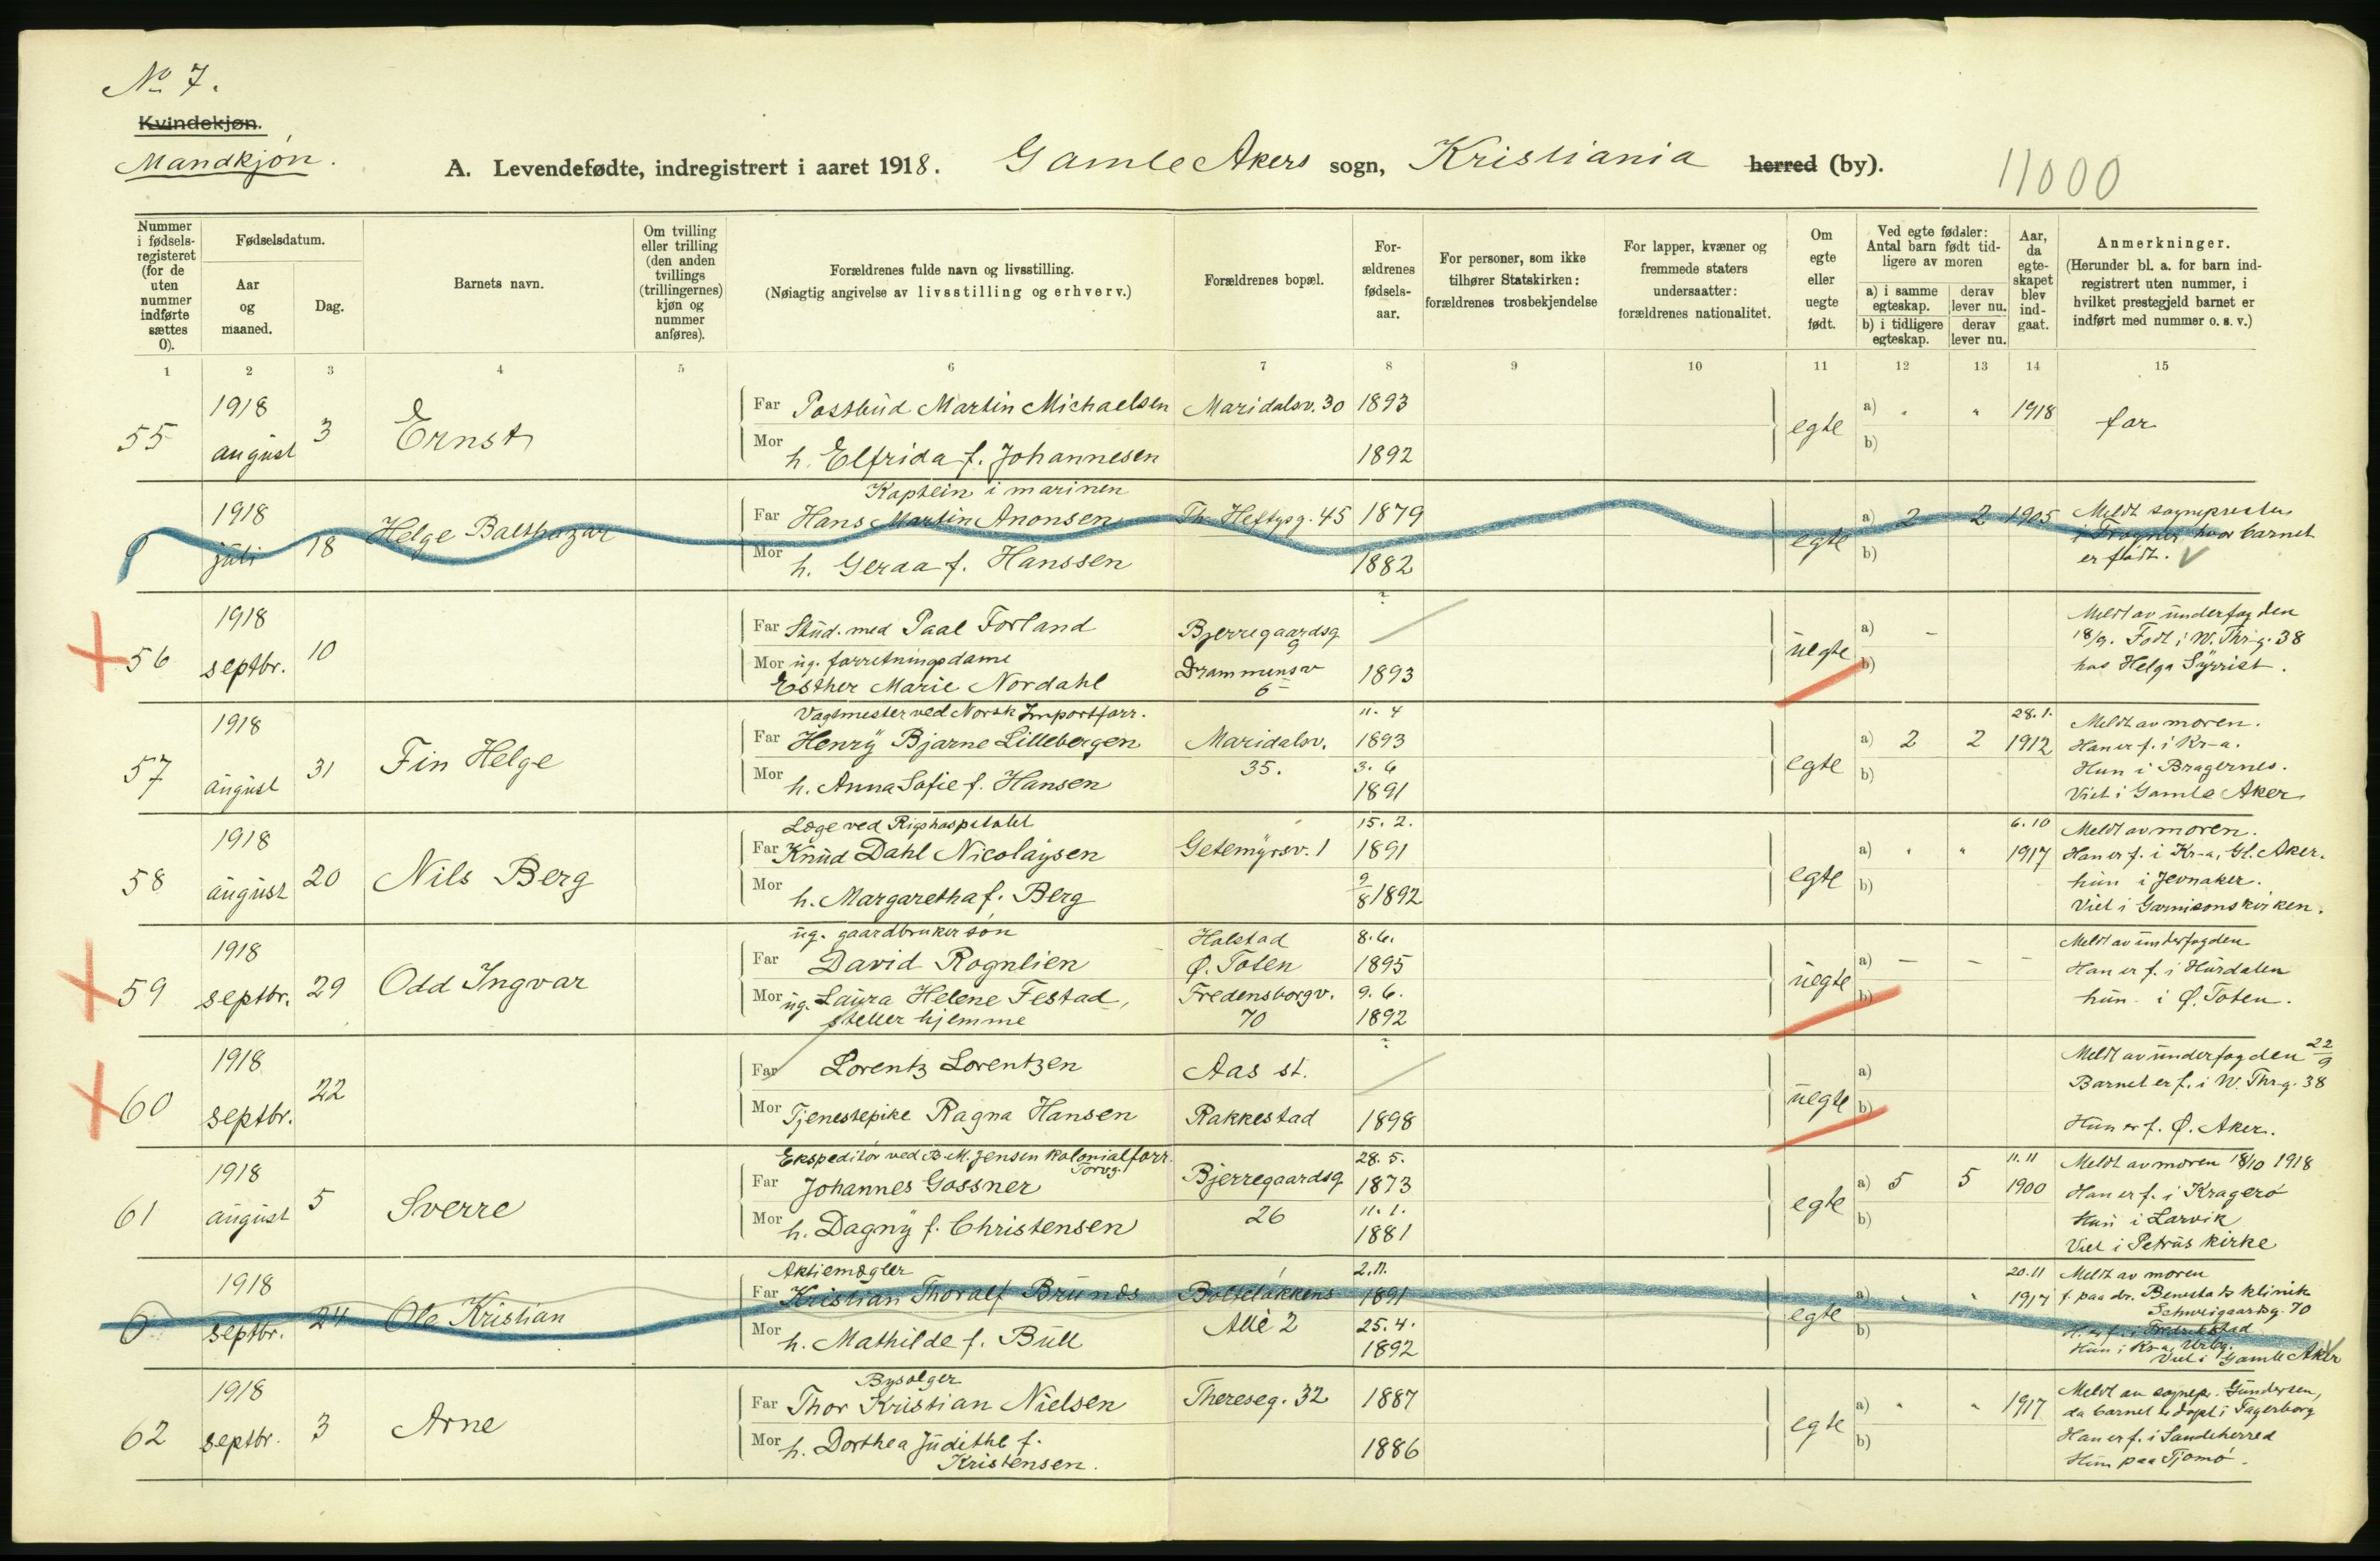 No 7.
Kvindekjøn.
Mandkjøn.
A. Levendefødte, indregistrert i aaret 1918. Gamle Akers sogn, Kristiania herred (by).
11000
Nummer i fødsels-registeret (for de uten nummer indførte sættes 0).
Fødselsdatum.
Aar og maaned.
Dag.
Barnets navn.
Om tvilling eller trilling (den anden tvillings (trillingernes) kjøn og nummer anføres).
Forældrenes fulde navn og livsstilling.
(Nøiagtig angivelse av livsstilling og erhverv.)
Forældrenes bopæl.
For-ældrenes fødsels-aar.
For personer, som ikke tilhører Statskirken: forældrenes trosbekjendelse
For lapper, kvæner og fremmede staters undersaatter: forældrenes nationalitet.
Om egte eller uegte født.
Ved egte fødsler: Antal barn født tid-ligere av moren
a) i samme egteskap.
derav lever nu.
b) i tidligere egteskap.
derav lever nu.
Aar, da egte-skapet blev ind-gaat.
Anmerkninger.
(Herunder bl. a. for barn ind-registrert uten nummer, i hvilket prestegjeld barnet er indført med nummer o. s. v.)
1 2 3 4 5 6 7 8 9 10 11 12 13 14 15
55 1918 august 3 Ernst
Far Postbud Martin Michaelsen Maridalsv. 30 1893
Mor h. Elfrida f. Johannesen 1892
egte a) " " 1918 far
b)
0 1918 juli 18 Helge Balthazar
Kaptein i marinen
Far Hans Martin Anonsen Th. Heftysg. 45 1879
Mor h. Gerda f. Hanssen 1882
egte a) 2 2 1905
b)
Meldt sognepresten
i Frogner, hvor barnet
er født.
56 1918 septbr. 10
Far Stud. med Paal Forland Bjerregaardsg 9 ?
Mor ug. forretningsdame
Esther Marie Nordahl Drammensv 6 1893
uegte a) –
b)
Meldt av underfog den
18/9. Født i W. Thr-g. 38
hos Helga
57 1918 august 31 Fin Helge
Vagtmester ved Norsk Importforr.
Far Henry Bjarne Lillebergen Maridalsv. 35. 11. 4 1893
Mor h. Anna Sofie f. Hansen 3. 6 1891
egte a) 2 2 28. 1. 1912
b)
Meldt av moren.
Han er f. i Kr-a.
Hun i Bragernes.
Viet i Gamle Aker
58 1918 august 20 Nils Berg
Læge ved Rigshospitalet
Far Knud Dahl Nicolaysen Getemyrsv. 1 15. 2. 1891
Mor h. Margaretha f. Berg 9/8 1892
egte a) " " 6. 10 1917
b)
Meldt av moren.
Han er f. i Kr-a, Gl. Aker.
hun i Jevnaker.
Viet i Garnisonskirken.
59 1918 septbr. 29 Odd Ingvar
ug. gaardbrukersøn
Far David Rognlien Halstad Ø. Toten 8. 6. 1895
Mor ug. Laura Helene Festad,
steller hjemme Fredensborgv. 70 9. 6. 1892
uegte a) – – –
b)
Meldt av underfogden
Han er f. i Hurdalen
hun i Ø. Toten.
60 1918 septbr. 22
Far Lorentz Lorentzen Aas st. ?
Mor Tjenestepike Ragna Hansen Rakkestad 1898
uegte a)
b)
Meldt av underfogden 22/9
Barnet er f. i W. Thr-g. 38
Hun er f. Ø. Aker.
61 1918 august 5 Sverre
Ekspeditør ved B. M. Jensen kolonialforr.
Torvg.
Far Johannes Gossner Bjerregaardsg 26 28. 5. 1873
Mor h. Dagny f. Christensen 11. 1. 1881
egte a) 5 5 11. 11 1900
b)
Meldt av moren 18/10 1918
Han er f. i Kragerø
Hun i Larvik
Viet i Petrus kirke
0 1918 septbr. 24 Ole Kristian
Aktiemægler
Far Kristian Thoralf Brunds Bolteløkkens Allè 2 2. 11. 1891
Mor h. Mathilde f. Bull 25. 4. 1892
egte a) " " 20. 11 1917
b)
Meldt av moren
f. paa dr. klinik
Schweigaardsg. 70
H. er f. i Fredrikstad
Hun i Kr-a, Urbg.
Viet i Gamle Aker
62 1918 septbr. 3 Arne
Bysælger
Far Thor Kristian Nielsen Thereseg. 32 1887
Mor h. Dorthea Judithe f.
Kristensen. 1886
egte a) " " 1917
b)
Meldt av sognepr. Gundersen,
da barnet er døpt i Fagerborg
Han er f. i Sandeherred
Hun paa Tjømø.